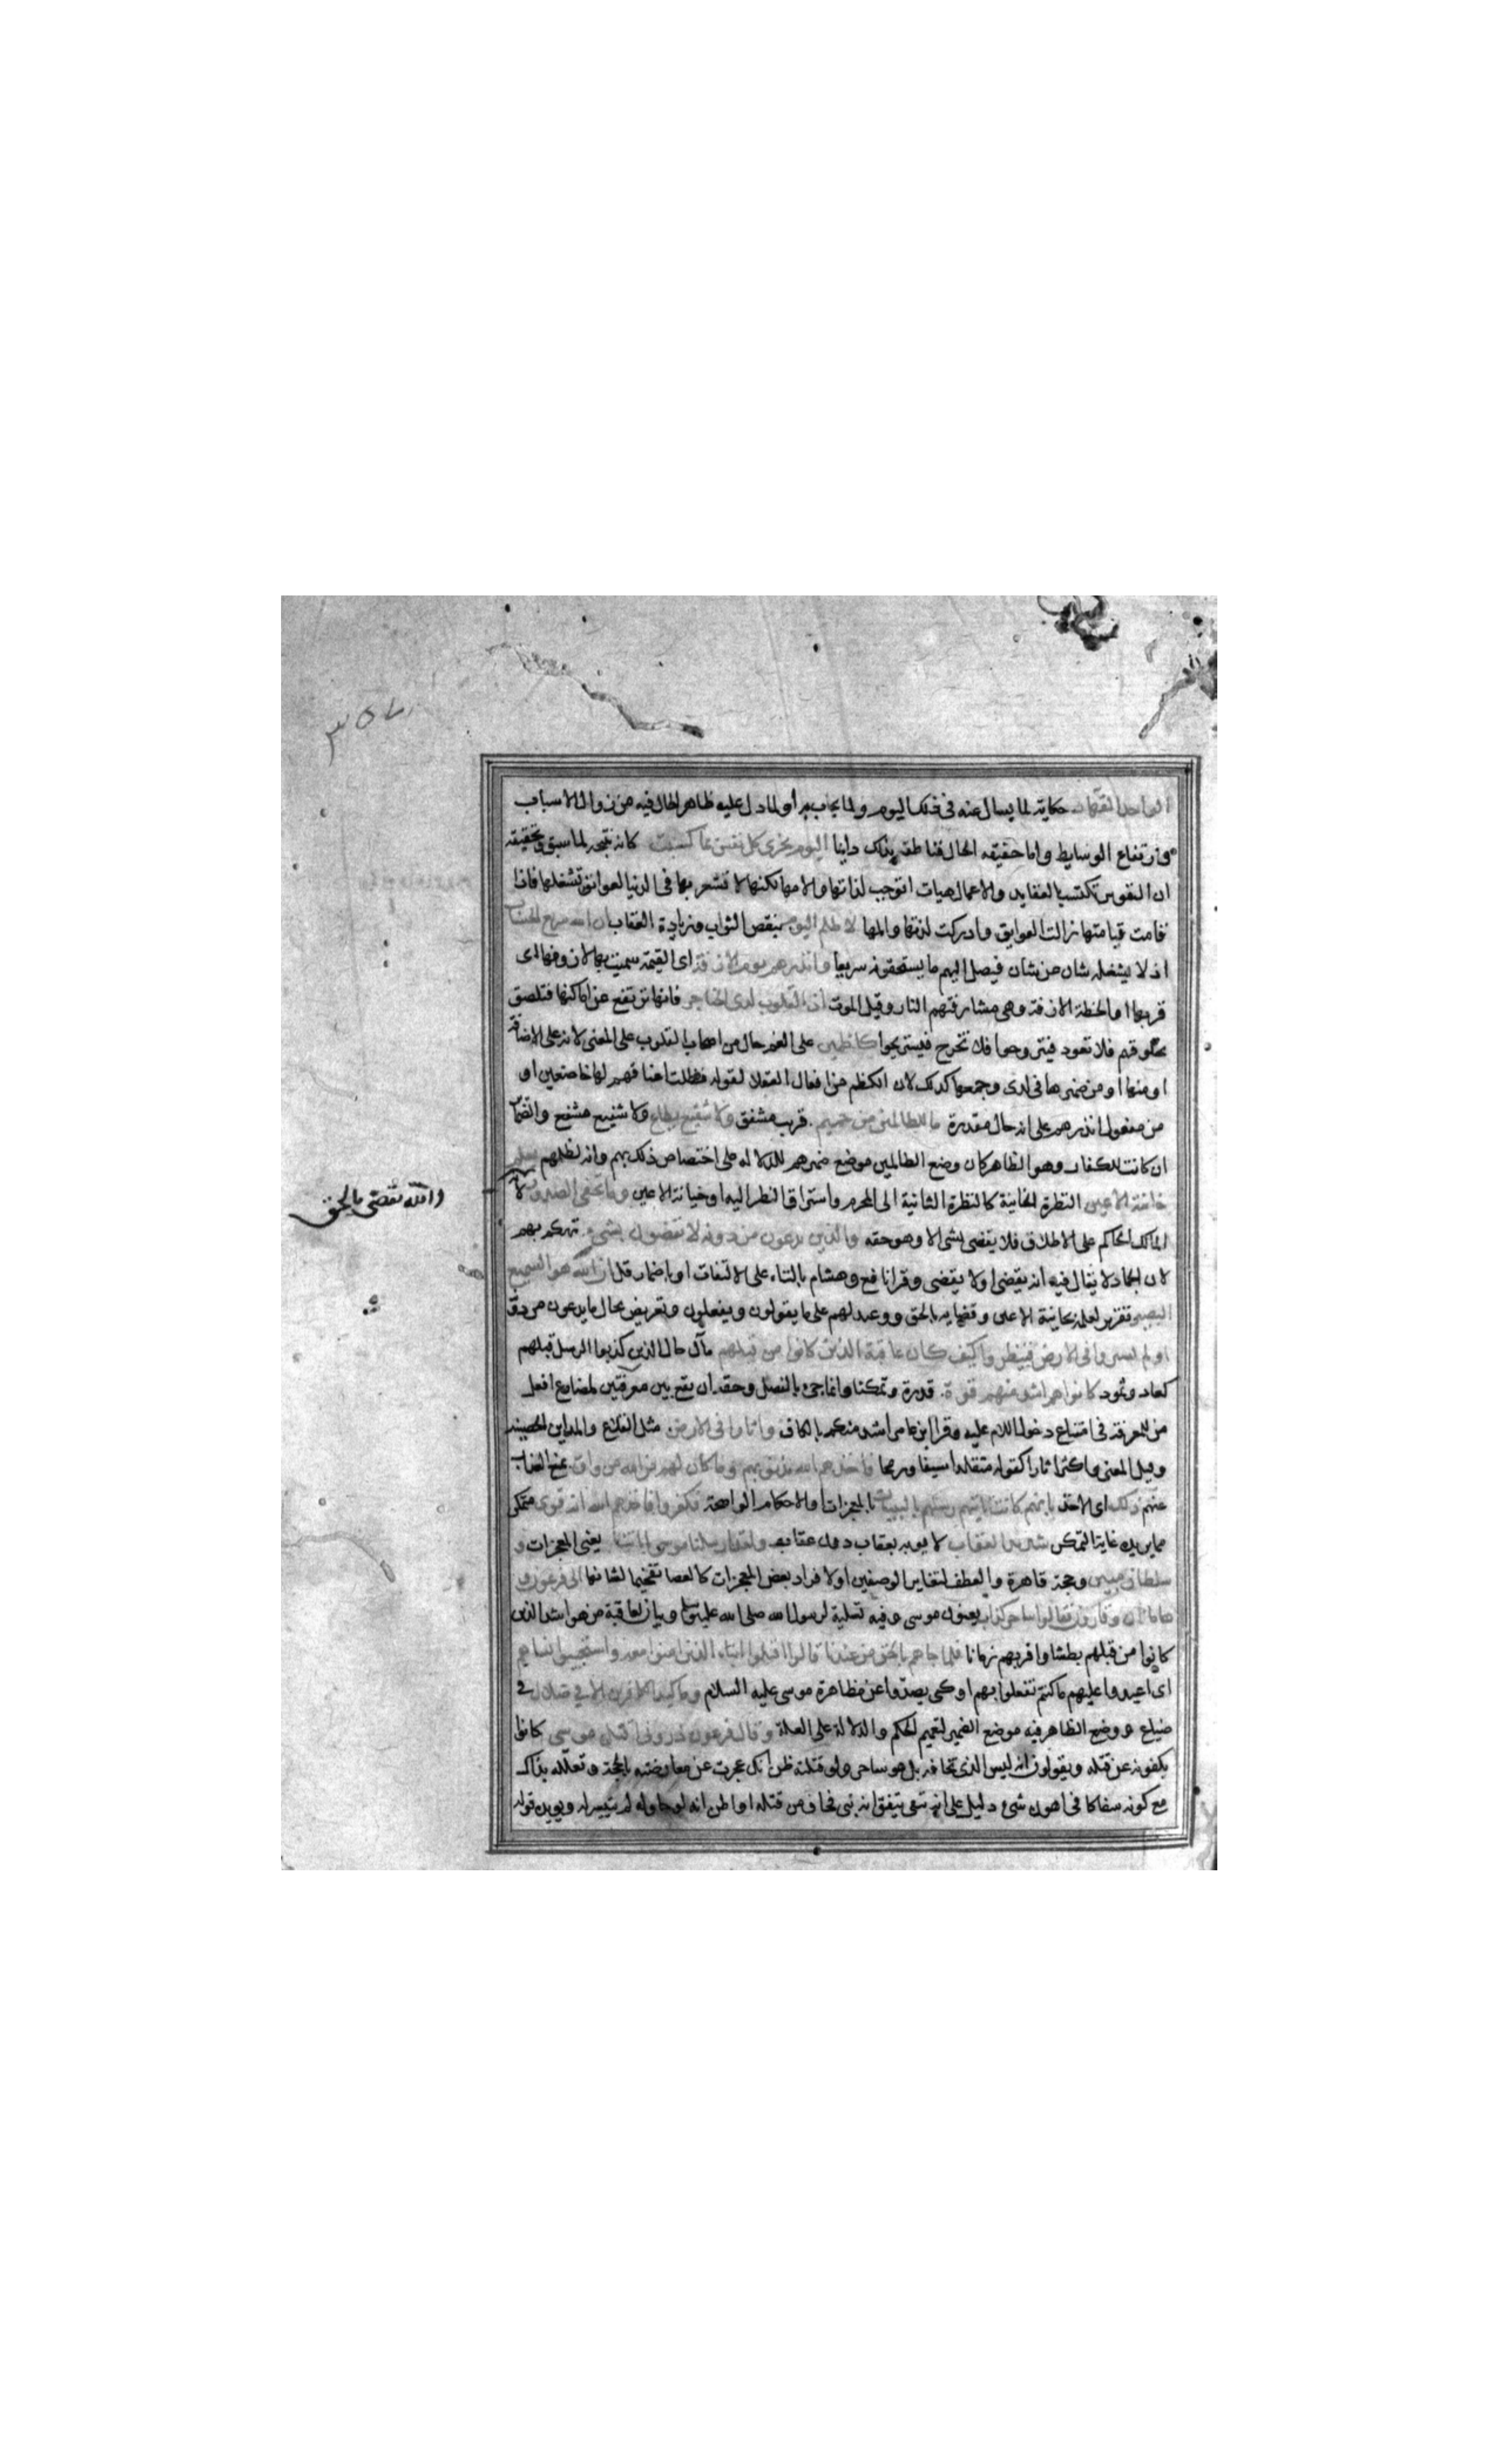 ٣٥٧
الواحد القهار حكاية لما يسال عنه في ذلك اليوم ولما يجاب به أو لما دل عليه ظاهر الحال فيه من زوال الاسباب
وارتفاع الوسايط واما حقيقه الحال فناطقه بذلك دايما اليوم تجزى كل نفس بما كسبت كانه نتيجه لما سبق وتحقيقه
ان النفوس تكتسب بالعقايد والاعمال هيات توجب لذاتها والامها لكنها لا تشعر بها في الدنيا لعوايق تشغلها فاذا
قامت قيامتها زالت العوايق وادركت لذتها والمها لا ظلم اليوم بنقص الثواب وزيادة العقاب ان الله سريع الحساب
اذ لا يشغله شان عن شان فيصل اليهم ما يستحقونه سريعا وانذرهم يوم الازفة اى القيمة سميت بها لازوفها اى
قربها او الخطة الازفة وهى مشارفتهم النار وقيل الموت اذ القلوب لدى الحناجر فانها ترتفع عن اماكنها فتلصق
بحلوقهم فلا تعود فيتروحوا ولا تخرج فيستريحوا كاظمين على الغم حال من اصحاب القلوب على المعنى لانه على الاضافة
او منها او من ضميرها فى لدى وجمعها كذلك لان الكظم من افعال العقلا لقوله فظلت اعناقهم لها خاضعين او
من مفعول انذرهم على انه حال مقدرة ما للظالمين من حميم قريب مشفق ولا شفيع يطاع ولا شفيع مشفع والضماير
ان كانت للكفار وهو الظاهر كان وضع الظالمين موضع ضميرهم للدلاله على اختصاص ذلك بهم وانه لظلمهم يعلم
خائنة الاعين النظرة الخاينة كالنظرة الثانية الى المحرم واستراق النظر اليه او خيانة الاعين وما تخفى الصدور لانه
والله يقضى بالحق
المالك الحاكم على الاطلاق فلا يقضى بشى الا وهو حقه والذين يدعون من دونه لا يقضون بشىء تهكم بهم
لان الجماد لا يقال فيه انه يقضى او لا يقضى وقرا نافع وهشام بالتاء على الالتفات او باضمار قل ان الله هو السميع
البصير تقرير لعلمه بخاينة الاعين وقضايه بالحق ووعيد لهم على ما يقولون ويفعلون وتعريض بحال ما يدعون من دونه
او لم يسيروا فى الارض فينظروا كيف كان عاقبة الذين كانوا من قبلهم مآل حال الذين كذبوا الرسل قبلهم
كعاد وثمود كانوا هم اشد منهم قوة قدرة وتمكنا وانما جئ بالفصل وحقه ان يقع بين معرفتين لمضارع افعل
من للمعرفة فى امتناع دخول اللام عليه وقرا ابن عامر اشد منكم بالكاف واثارا فى الارض مثل القلاع والمداين الحصينه
وقيل المعنى واكثر اثارا كقوله متقلدا سيفا ورمحا فاخذهم الله بذنوبهم وما كان لهم من الله من واق يمنع العذاب
عنهم ذلك اى الاخذ بانهم كانت تاتيهم رسلهم بالبينات بالمعجزات والاحكام الواضحة فكفروا فاخذهم الله انه قوى متمكن
مما يريده غاية التمكن شديد العقاب لا يوبه بعقاب دون عقابه ولقد ارسلنا موسى باياتنا يعنى المعجزات و
سلطان مبين وحجة قاهرة والعطف لتغاير الوصفين او لافراد بعض المعجزات كالعصا تفخيما لشانها الى فرعون و
هامان وقارون فقالوا ساحر كذاب يعنون موسى وفيه تسلية لرسول الله صلى الله عليه وسلم وبيان لعاقبة من هو اشد الذين
كانوا من قبلهم بطشا واقربهم زمانا فلما جاهم بالحق من عندنا قالوا اقتلوا ابناء الذين امنوا معه واستحيوا نساهم
اى اعيدوا عليهم ما كنتم تفعلوا بهم او كى يصدوا عن مظاهرة موسى عليه السلام وما كيد الكافرين الا في ضلال فى
ضياع ووضع الظاهر فيه موضع الضمير لتعميم الحكم والدلالة على العلة وقال فرعون ذرونى اقتل موسى كانوا
يكفونه عن قتله ويقولون انه ليس الذى تخافه بل هو ساحر ولو قتلته ظن انك عجزت عن معارضته بالحجة وتعلله بذلك
مع كونه سفاكا فى اهون شىء دليل على انه تيقن انه نبى فخاف من قتله او ظن انه لو حاوله لم يتيسر له ويويده قوله